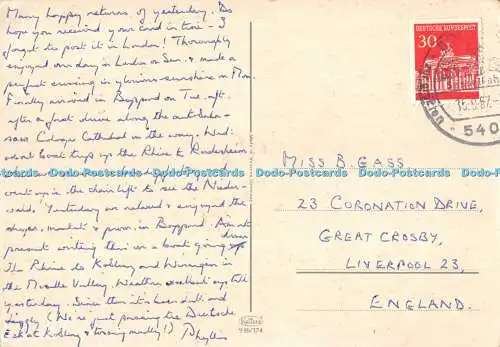 Many happy returns of yesterday. Do
hope you received your card in time - I
forgot to post it in London! Thoroughly
enjoyed our day in London on Sun. & made a
perfect crossing in glorious sunshine on Mon.
Finally arrived in Boppard on Tue. aft.
after a fast drive along the
Cologne Cathedral on the way. Wed:
boat trip up the Rhine to Rüdesheim
went up in the chair lift to see the Nieder-
wald! Yesterday we relaxed & enjoyed the
shops, market & prom. in Boppard. Am at
present writing this on a boat going
The Rhine to Koblenz and Winningen in
the Moselle Valley. Weather excellent up till
yesterday. Since then it's been dull and
(We're just passing the Deutsche
Eck at Koblenz & turning
Phyllis
DEUTSCHE BUNDESPOST
30
540
MISS B. GASS
23 CORONATION DRIVE,
GREAT CROSBY,
LIVERPOOL 23,
ENGLAND.
Dodo-Postcards Dodo-Postcards Dodo-Postcards Dodo-Postcards Dodo-Postcards